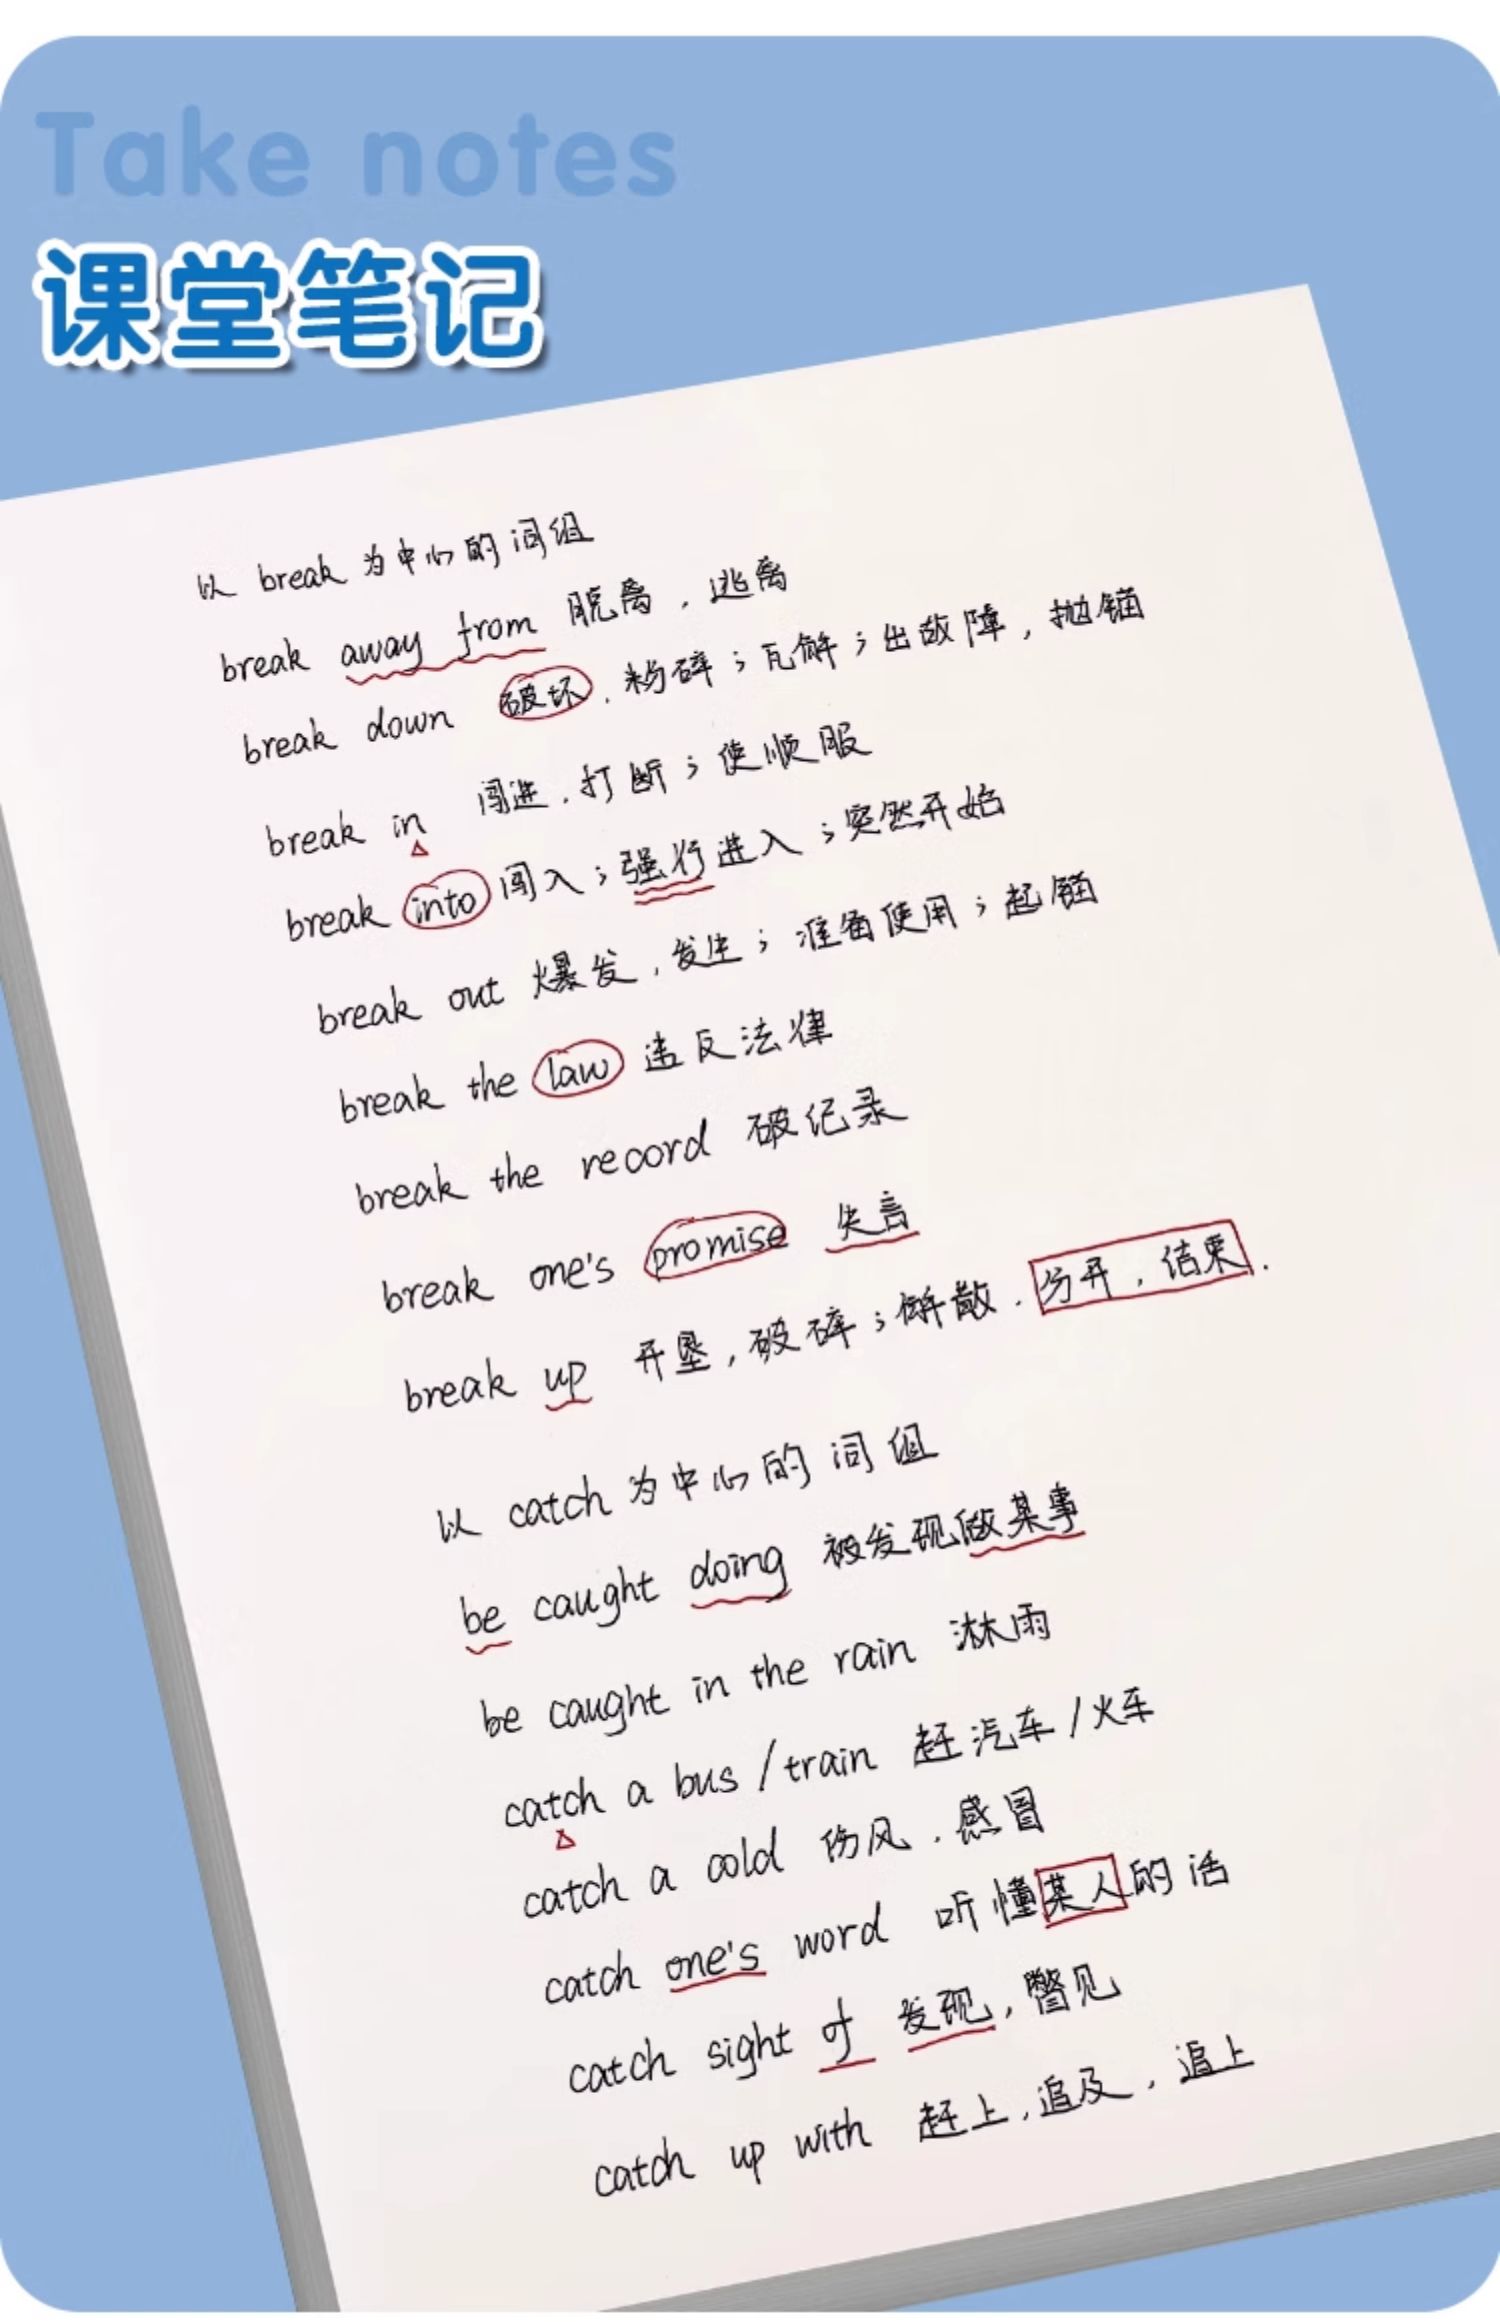 Take notes
课堂笔记
以 break 为中心的词组
break away from 脱离，逃离
break down 破坏，粉碎；瓦解；出故障，抛锚
break in 闯进，打断；使顺服
break into 闯入；强行进入；突然开始
break out 爆发，发生；准备使用；起锚
break the law 违反法律
break the record 破纪录
break one's promise 失言
break up 开垦，破碎；解散，分开，结束．
以 catch 为中心的词组
be caught doing 被发现做某事
be caught in the rain 淋雨
catch a bus/train 赶汽车/火车
catch a cold 伤风，感冒
catch one's word 听懂某人的话
catch sight of 发现，瞥见
catch up with 赶上，追及，追上